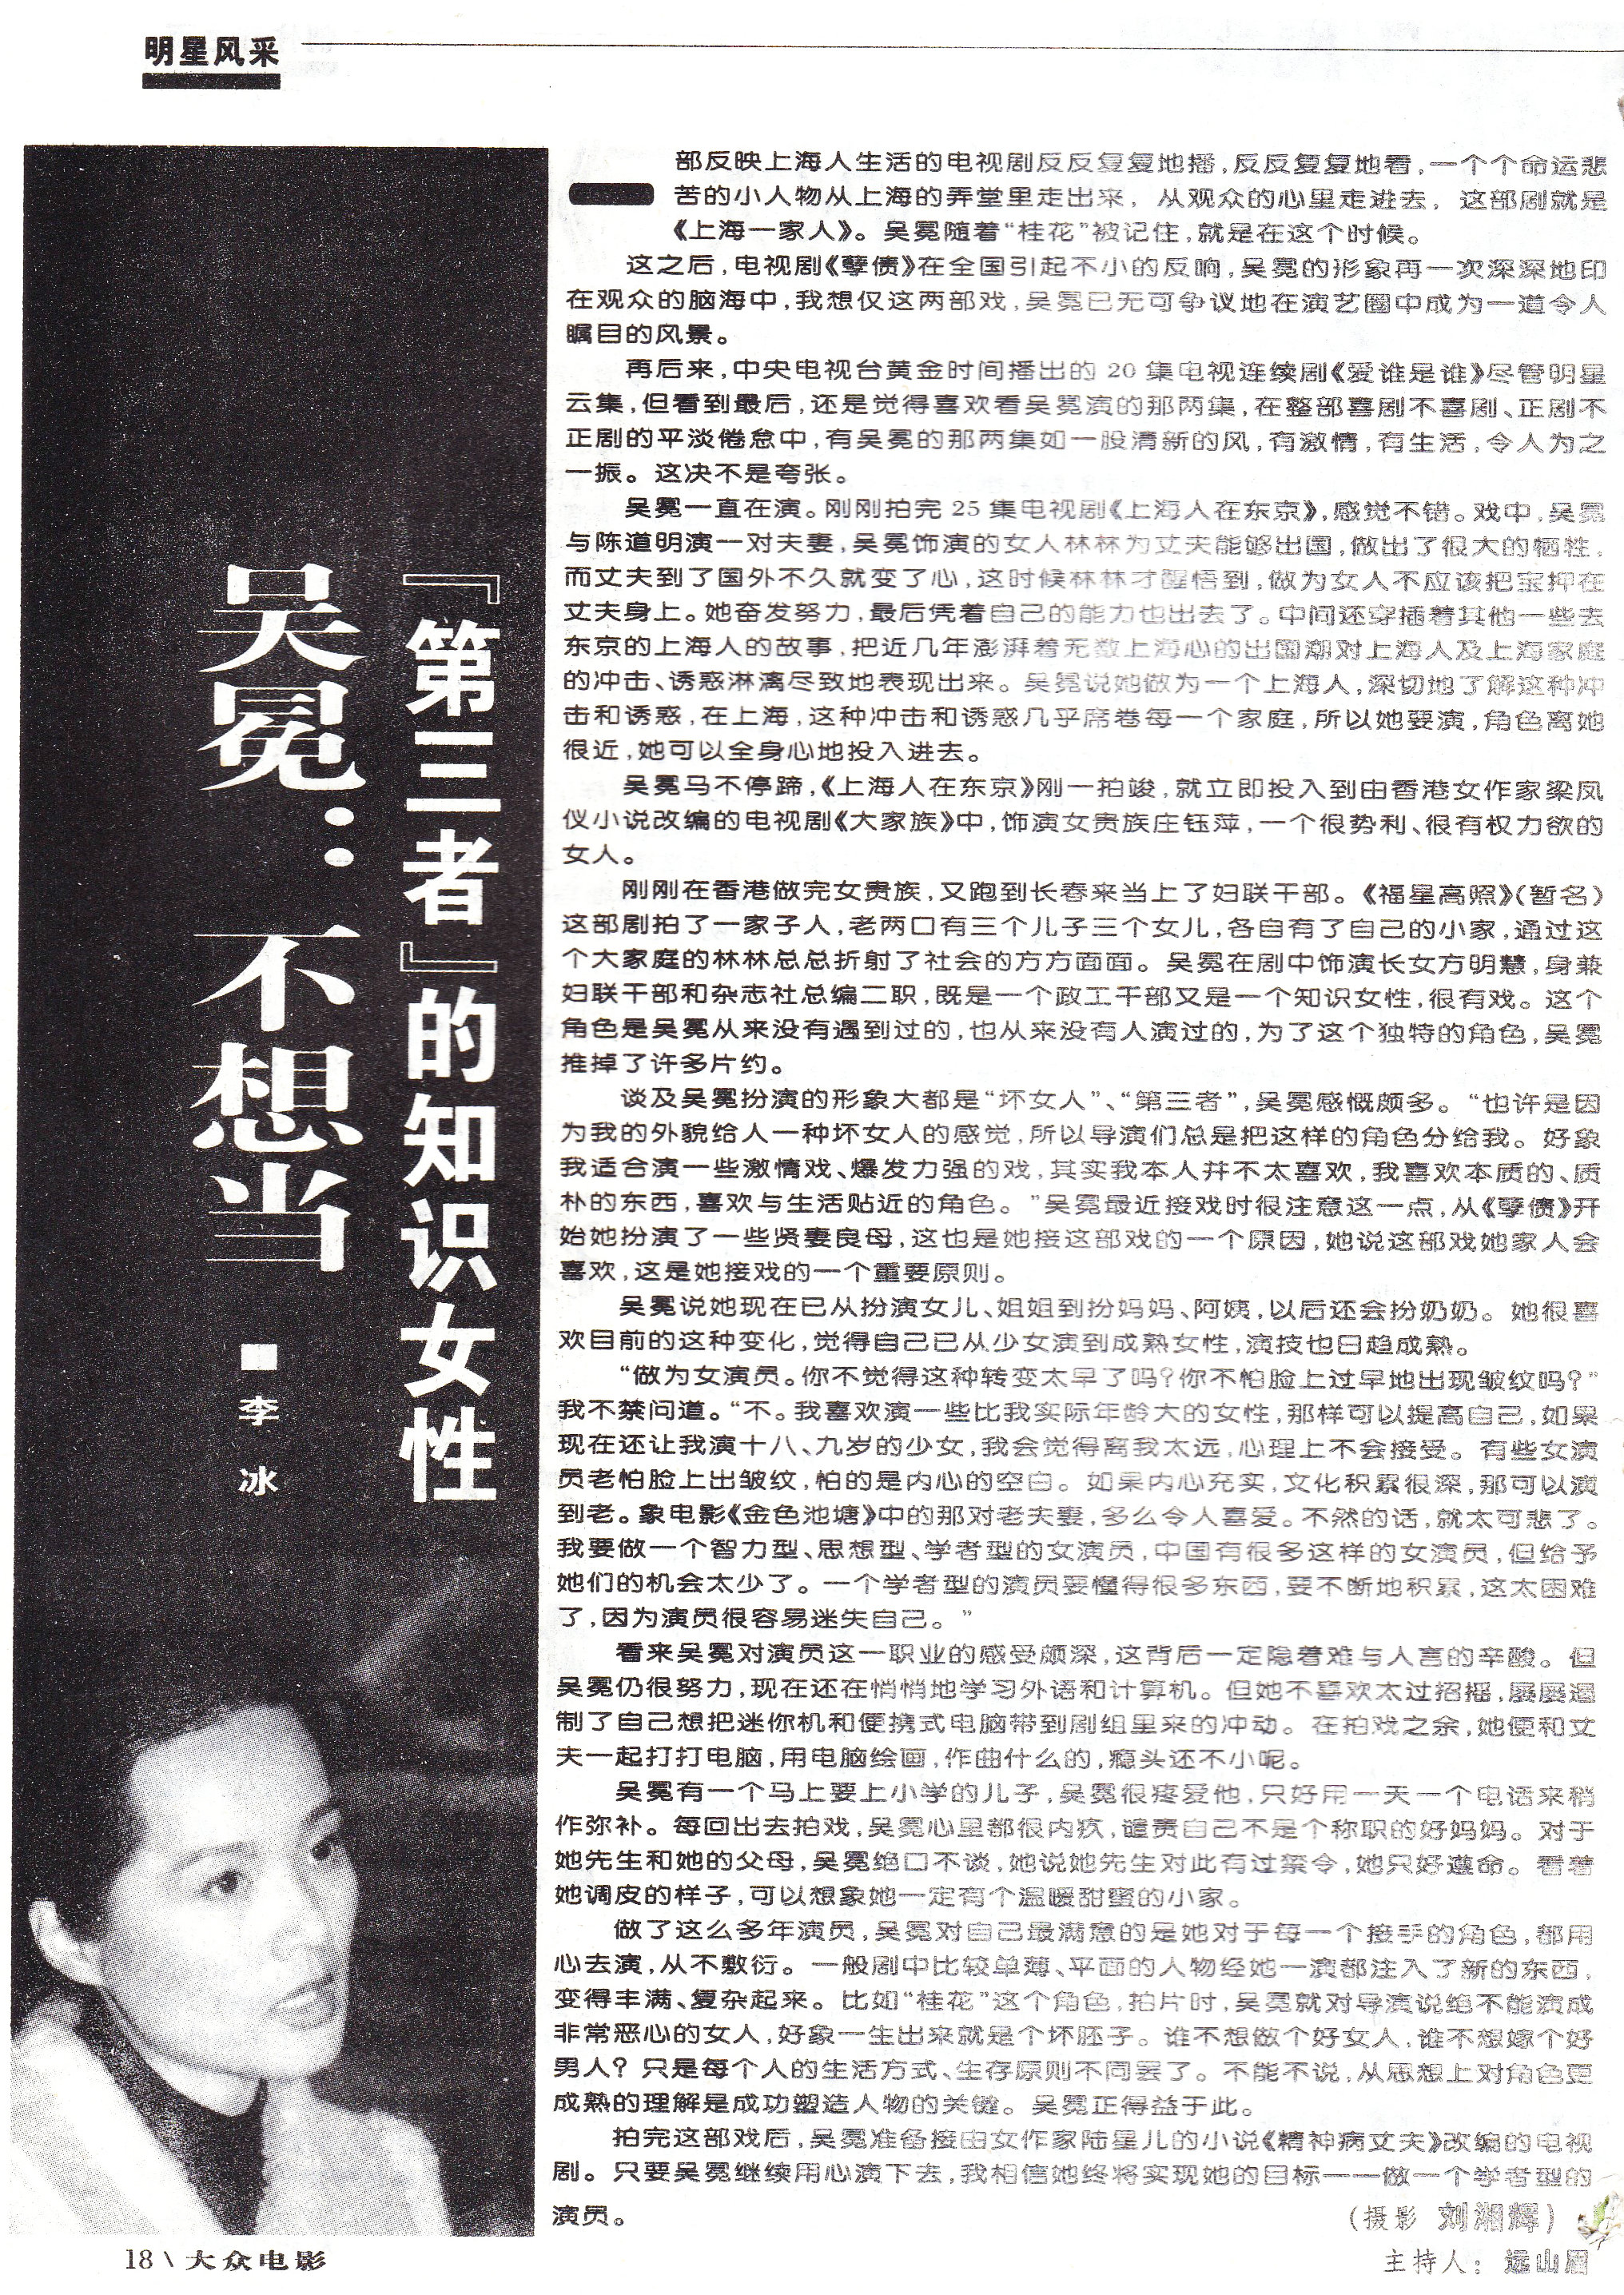 明星风采
吴冕：不想当
『第三者』的知识女性
■李 冰
一部反映上海人生活的电视剧反反复复地播,反反复复地看,一个个命运悲
苦的小人物从上海的弄堂里走出来，从观众的心里走进去，这部剧就是
《上海一家人》。吴冕随着“桂花”被记住,就是在这个时候。
这之后,电视剧《孽债》在全国引起不小的反响,吴冕的形象再一次深深地印
在观众的脑海中,我想仅这两部戏,吴冕已无可争议地在演艺圈中成为一道令人
瞩目的风景。
再后来,中央电视台黄金时间播出的 20 集电视连续剧《爱谁是谁》尽管明星
云集,但看到最后,还是觉得喜欢看吴冕演的那两集,在整部喜剧不喜剧、正剧不
正剧的平淡倦怠中,有吴冕的那两集如一股清新的风,有激情,有生活,令人为之
一振。这决不是夸张。
吴冕一直在演。刚刚拍完 25 集电视剧《上海人在东京》,感觉不错。戏中,吴冕
与陈道明演一对夫妻,吴冕饰演的女人林林为丈夫能够出国,做出了很大的牺牲,
而丈夫到了国外不久就变了心,这时候林林才醒悟到,做为女人不应该把宝押在
丈夫身上。她奋发努力,最后凭着自己的能力也出去了。中间还穿插着其他一些去
东京的上海人的故事,把近几年澎湃着无数上海心的出国潮对上海人及上海家庭
的冲击、诱惑淋漓尽致地表现出来。吴冕说她做为一个上海人,深切地了解这种冲
击和诱惑,在上海,这种冲击和诱惑几乎席卷每一个家庭,所以她要演,角色离她
很近,她可以全身心地投入进去。
吴冕马不停蹄,《上海人在东京》刚一拍竣,就立即投入到由香港女作家梁凤
仪小说改编的电视剧《大家族》中,饰演女贵族庄钰萍,一个很势利、很有权力欲的
女人。
刚刚在香港做完女贵族,又跑到长春来当上了妇联干部。《福星高照》(暂名)
这部剧拍了一家子人,老两口有三个儿子三个女儿,各自有了自己的小家,通过这
个大家庭的林林总总折射了社会的方方面面。吴冕在剧中饰演长女方明慧,身兼
妇联干部和杂志社总编二职,既是一个政工干部又是一个知识女性,很有戏。这个
角色是吴冕从来没有遇到过的,也从来没有人演过的,为了这个独特的角色,吴冕
推掉了许多片约。
谈及吴冕扮演的形象大都是“坏女人”、“第三者”,吴冕感慨颇多。“也许是因
为我的外貌给人一种坏女人的感觉,所以导演们总是把这样的角色分给我。好象
我适合演一些激情戏、爆发力强的戏,其实我本人并不太喜欢,我喜欢本质的、质
朴的东西,喜欢与生活贴近的角色。”吴冕最近接戏时很注意这一点,从《孽债》开
始她扮演了一些贤妻良母,这也是她接这部戏的一个原因,她说这部戏她家人会
喜欢,这是她接戏的一个重要原则。
吴冕说她现在已从扮演女儿、姐姐到扮妈妈、阿姨,以后还会扮奶奶。她很喜
欢目前的这种变化,觉得自己已从少女演到成熟女性,演技也日趋成熟。
“做为女演员。你不觉得这种转变太早了吗?你不怕脸上过早地出现皱纹吗?”
我不禁问道。“不。我喜欢演一些比我实际年龄大的女性,那样可以提高自己,如果
现在还让我演十八、九岁的少女,我会觉得离我太远,心理上不会接受。有些女演
员老怕脸上出皱纹,怕的是内心的空白。如果内心充实,文化积累很深,那可以演
到老。象电影《金色池塘》中的那对老夫妻,多么令人喜爱。不然的话,就太可悲了。
我要做一个智力型、思想型、学者型的女演员,中国有很多这样的女演员,但给予
她们的机会太少了。一个学者型的演员要懂得很多东西,要不断地积累,这太困难
了,因为演员很容易迷失自己。”
看来吴冕对演员这一职业的感受颇深,这背后一定隐着难与人言的辛酸。但
吴冕仍很努力,现在还在悄悄地学习外语和计算机。但她不喜欢太过招摇,屡屡遏
制了自己想把迷你机和便携式电脑带到剧组里来的冲动。在拍戏之余,她便和丈
夫一起打打电脑,用电脑绘画,作曲什么的,瘾头还不小呢。
吴冕有一个马上要上小学的儿子,吴冕很疼爱他,只好用一天一个电话来稍
作弥补。每回出去拍戏,吴冕心里都很内疚,谴责自己不是个称职的好妈妈。对于
她先生和她的父母,吴冕绝口不谈,她说她先生对此有过禁令,她只好遵命。看着
她调皮的样子,可以想象她一定有个温暖甜蜜的小家。
做了这么多年演员,吴冕对自己最满意的是她对于每一个接手的角色,都用
心去演,从不敷衍。一般剧中比较单薄、平面的人物经她一演都注入了新的东西,
变得丰满、复杂起来。比如“桂花”这个角色,拍片时,吴冕就对导演说绝不能演成
非常恶心的女人,好象一生出来就是个坏胚子。谁不想做个好女人,谁不想嫁个好
男人？只是每个人的生活方式、生存原则不同罢了。不能不说,从思想上对角色更
成熟的理解是成功塑造人物的关键。吴冕正得益于此。
拍完这部戏后,吴冕准备接由女作家陆星儿的小说《精神病丈夫》改编的电视
剧。只要吴冕继续用心演下去,我相信她终将实现她的目标——做一个学者型的
演员。
(摄影 刘湘辉)
主持人：远山眉
18\大众电影